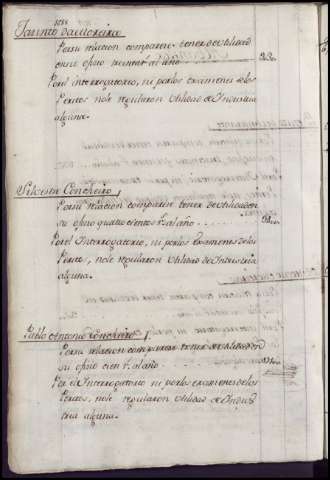 Jacinto da Moreira
Por su relacion comparece tener de utilidad
en su ofizio treinta r.s al año
Por el interrogatorio, ni por los examenes de los
Peritos no le regularon Utilidad de Industria
alguna.
Silvestre Concheiro
Por su relacion comparece tener de utilidad en
su ofizio quatrocientos r.s al año
Por el Interrogatorio, ni por los examenes de los
Peritos, no le regularon Utilidad de Industria
alguna.
Pablo Antonio Concheiro
Por su relacion comparece tener de utilidad en
su ofizio cien r.s al año
Por el Interrogatorio ni por los examenes de los
Peritos, no le regularon Utilidad de Indus
tria alguna.